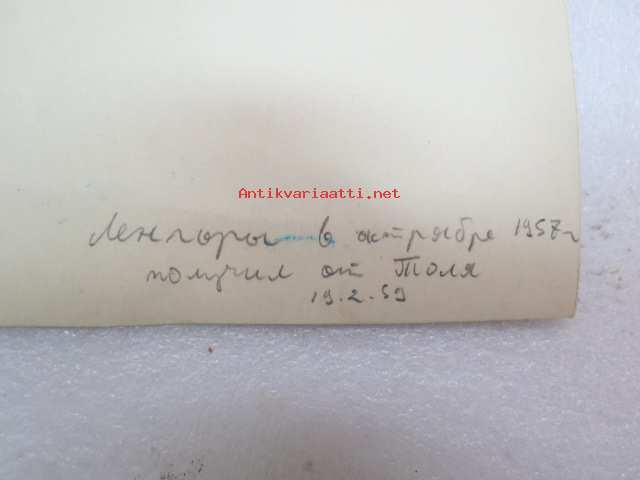 Antikvariaatti.net
Ленгоры в октрябре 1957 г
получил от Толя
19.2.59